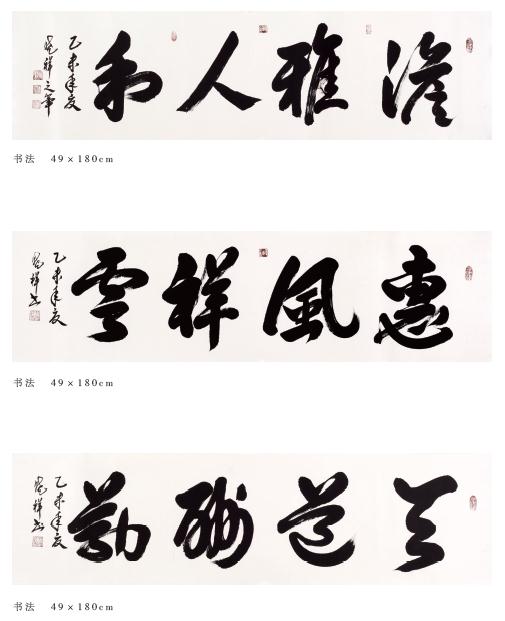 澹雅人和
乙未年夏
祥之筆
书法 49×180cm
惠風祥雲
乙未年夏
祥书
书法 49×180cm
天道酬勤
乙未年夏
祥书
书法 49×180cm